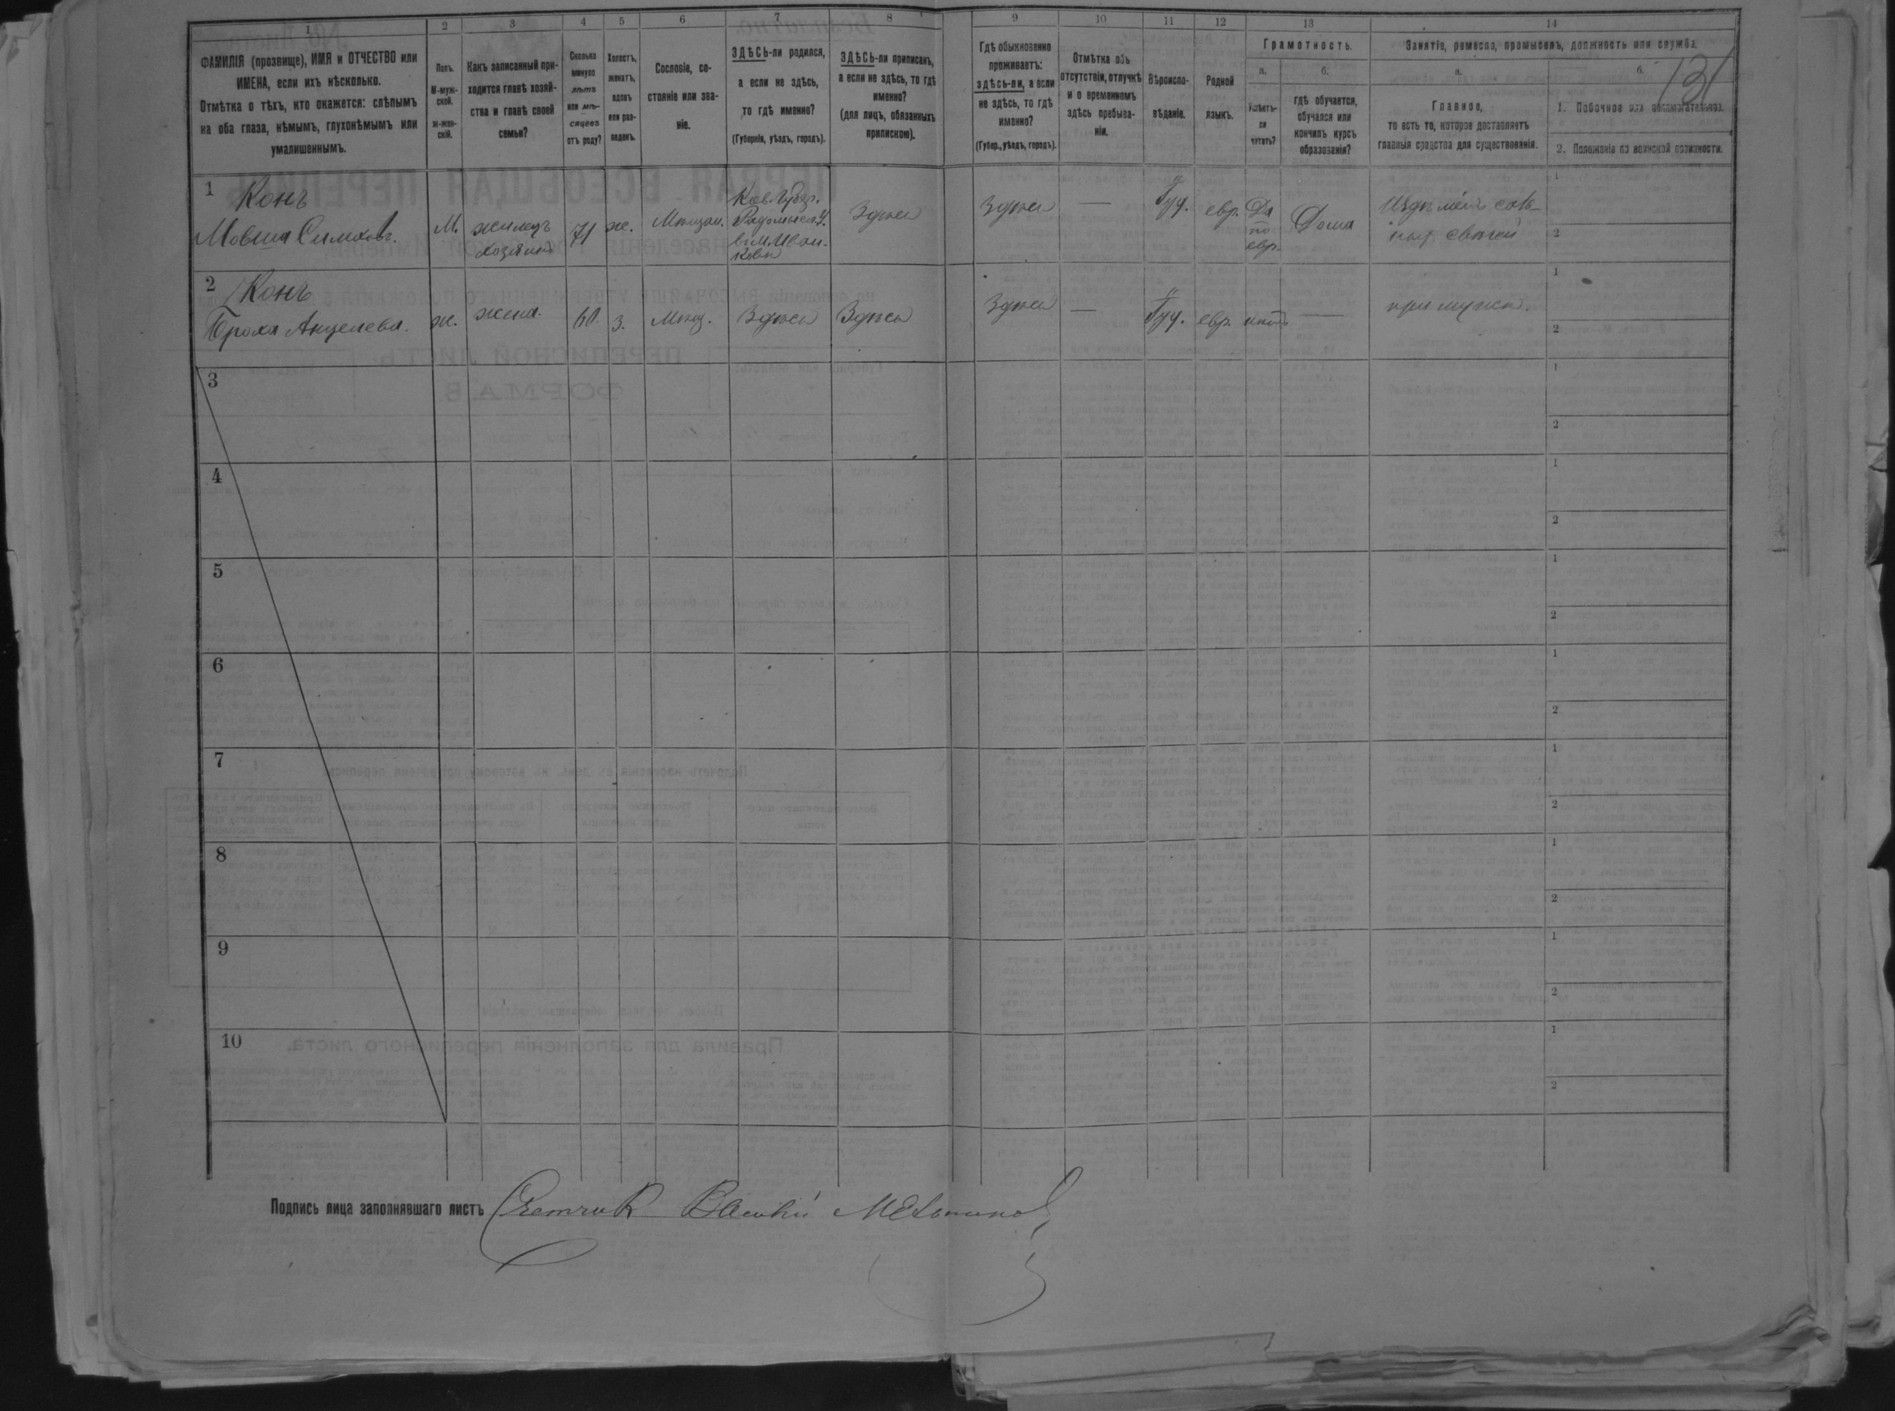 1 2 3 4 5 6 7 8 9 10 11 12 13 14
ФАМИЛІЯ (прозвище), ИМЯ и ОТЧЕСТВО или
ИМЕНА, если ихъ нѣсколько.
Отмѣтка о тѣхъ, кто окажется: слѣпымъ
на оба глаза, нѣмымъ, глухонѣмымъ или
умалишеннымъ.
Полъ.
М-муж-
ской.
ж-жен-
скій.
Какъ записанный при-
ходится главѣ хозяй-
ства и главѣ своей
семьи?
Сколько
минуло
лѣтъ
или мѣ-
сяцевъ
отъ роду?
Холостъ,
женатъ,
вдовъ
или раз-
веденъ.
Сословіе, со-
стояніе или зва-
ніе.
ЗДѢСЬ-ли родился,
а если не здѣсь,
то гдѣ именно?
(Губернія, уѣздъ, городъ).
ЗДѢСЬ-ли приписанъ,
а если не здѣсь, то гдѣ
именно?
(для лицъ, обязанныхъ
припискою).
Гдѣ обыкновенно
проживаетъ:
здѣсь-ли, а если
не здѣсь, то гдѣ
именно?
(Губер., уѣздъ, городъ).
Отмѣтка объ
отсутствіи, отлучкѣ
и о временномъ
здѣсь пребыва-
ніи.
Вѣроиспо-
вѣданіе.
Родной
языкъ.
Грамотность.
а.
Умѣетъ-
ли
читать?
б.
гдѣ обучается,
обучался или
кончилъ курсъ
образованія?
Занятіе, ремесло, промыселъ, должность или служба.
а.
Главное,
то есть то, которое доставляетъ
главныя средства для существованія.
б.
131
1. Побочное или вспомогательное.
2. Положеніе по воинской повинности.
1
Конъ
Мовша
М.
жилецъ
хозяинъ
71
ж.
Мѣщан.
Здѣсь
Здѣсь
—
Іуд.
евр.
Да
по
евр.
Дома
1
2
2
Конъ
Броха Анцелева.
ж.
жена.
60
з.
Мѣщ.
Здѣсь
Здѣсь
Здѣсь
—
Іуд.
евр.
нѣтъ
—
при мужѣ.
1
2
3
1
2
4
1
2
5
1
2
6
1
2
7
1
2
8
1
2
9
1
2
10
1
2
Подпись лица заполнявшаго листъ Счетчикъ